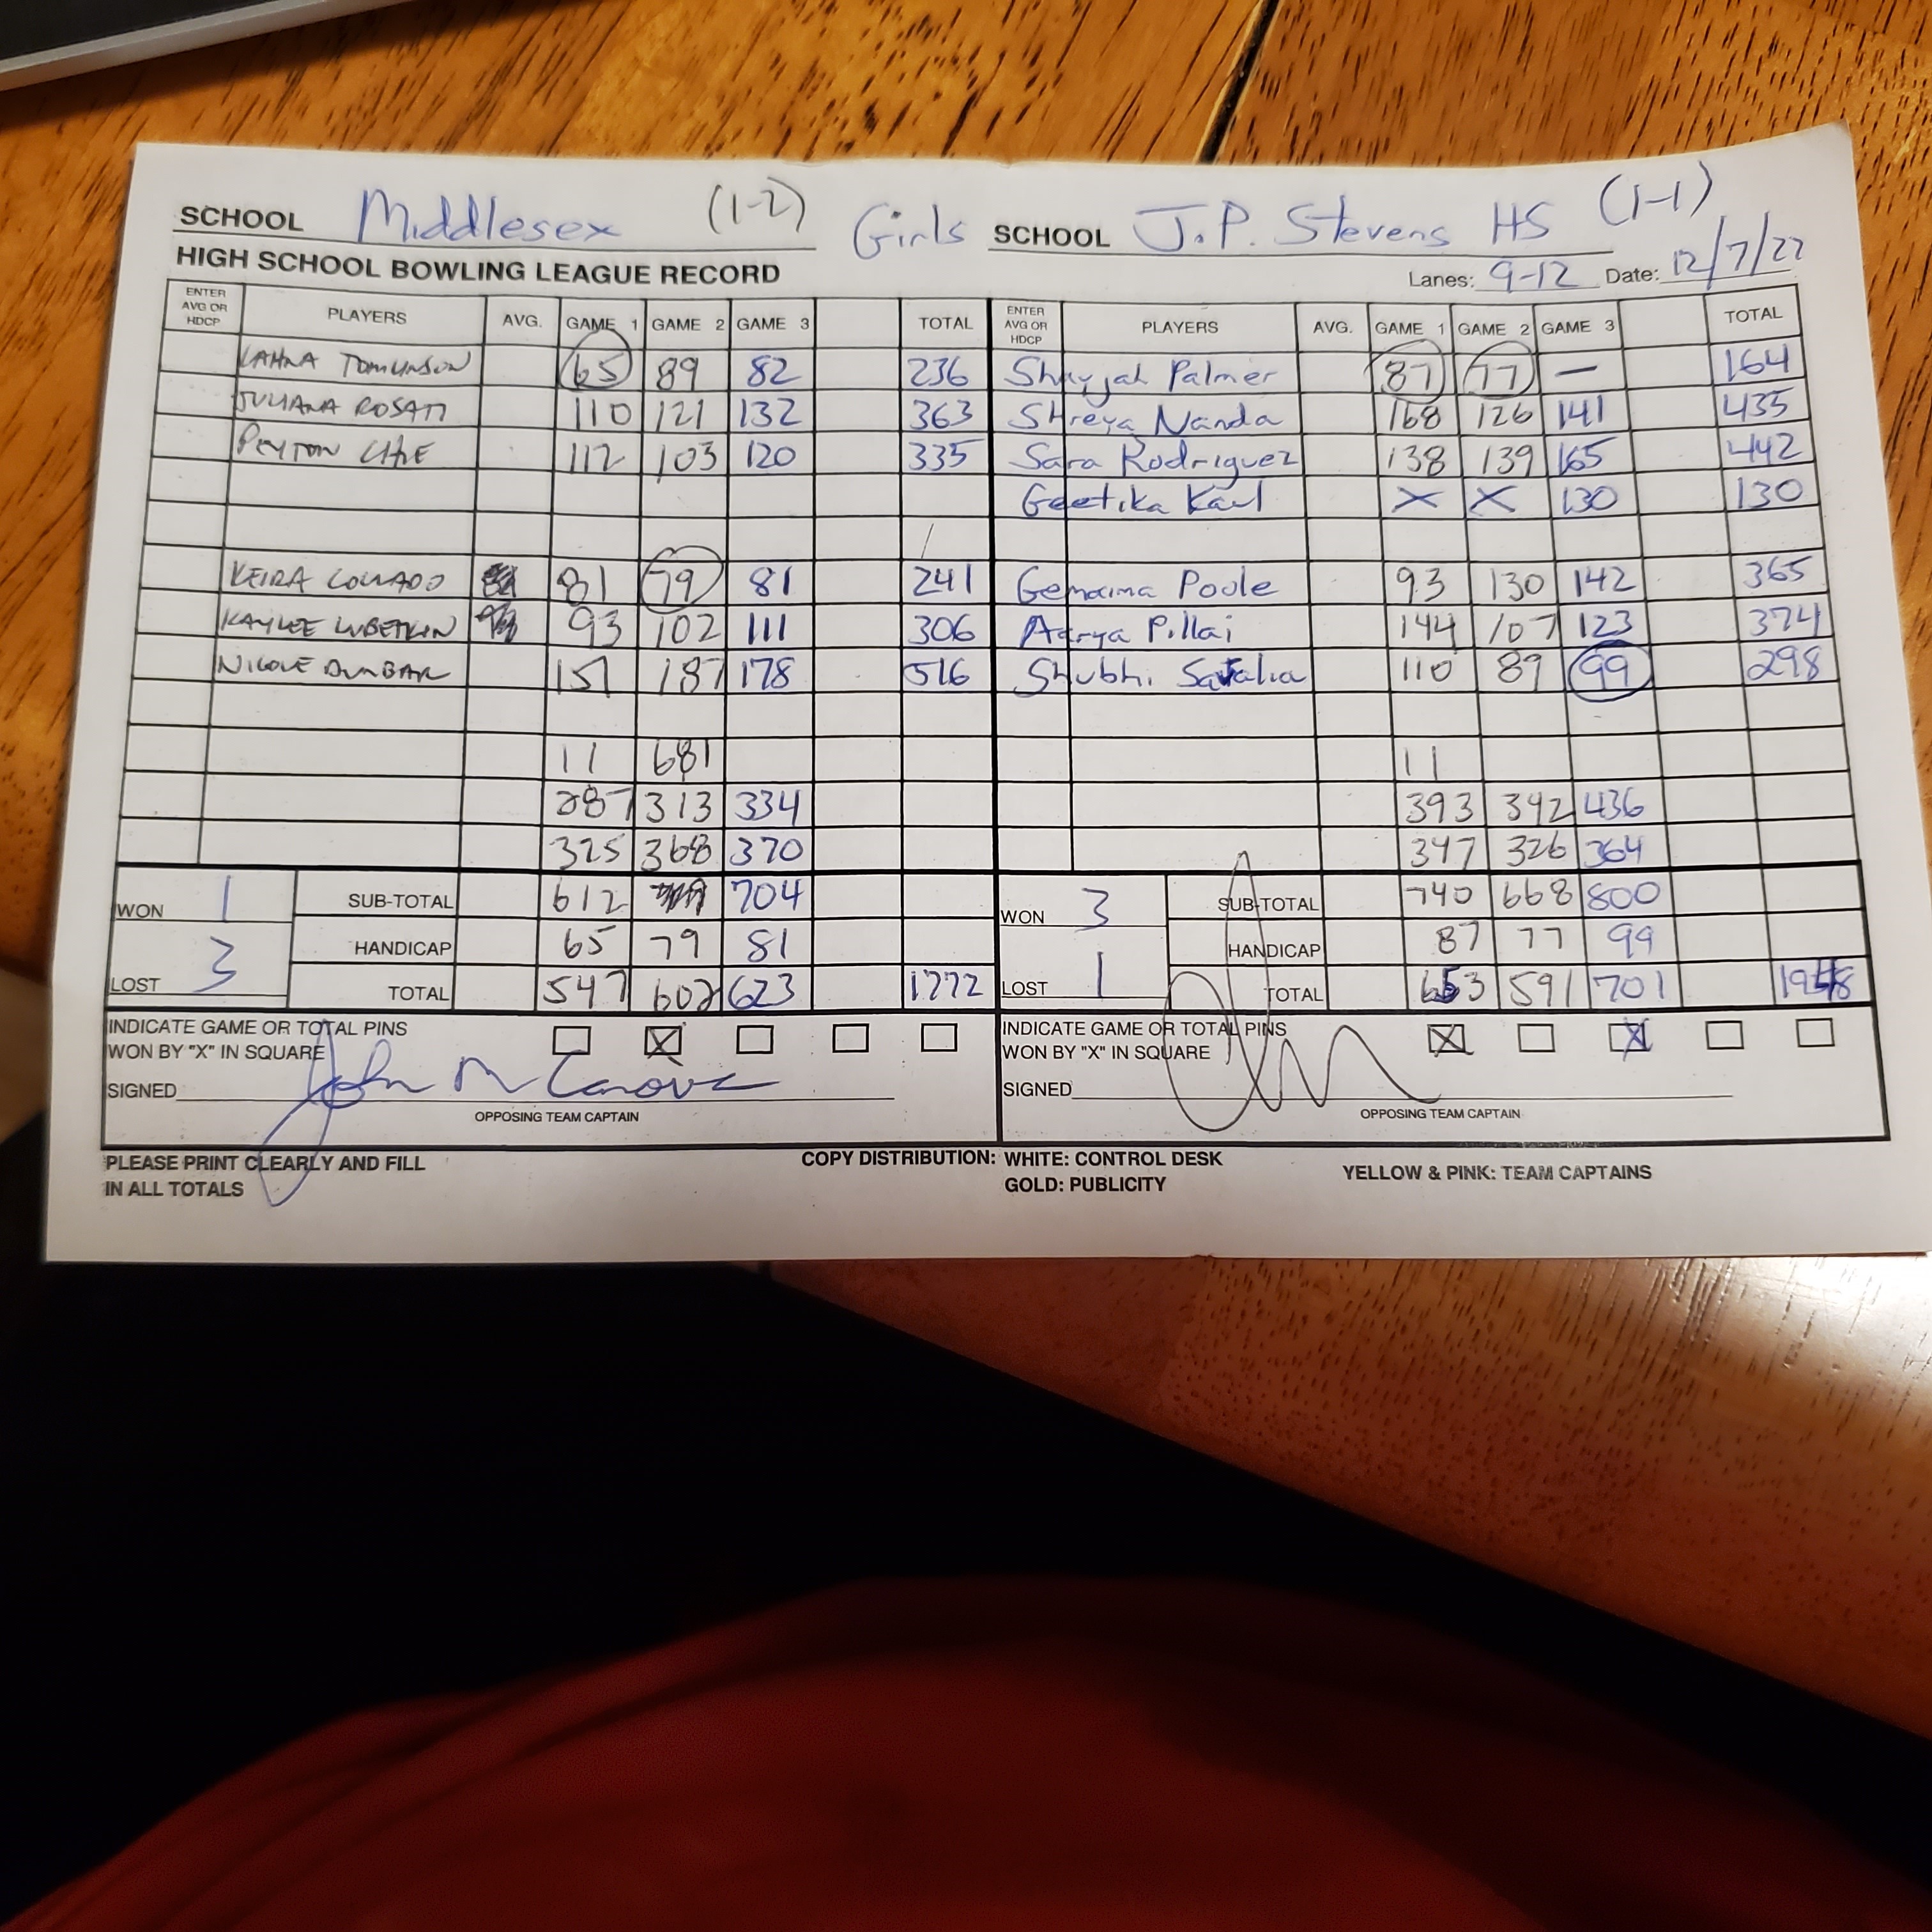 SCHOOL Middlesex (1-2) Girls SCHOOL J.P. Stevens HS (1-1)
HIGH SCHOOL BOWLING LEAGUE RECORD Lanes: 9-12 Date: 12/7/22
ENTER AVG OR HDCP PLAYERS AVG. GAME 1 GAME 2 GAME 3 TOTAL ENTER AVG OR HDCP PLAYERS AVG. GAME 1 GAME 2 GAME 3 TOTAL
LAHNA TOMLINSON 65 89 82 236 Shayjah Palmer 87 77 — 164
JULIANA ROSATI 110 121 132 363 Shreya Nanda 168 126 141 435
PEYTON 112 103 120 335 Sara Rodriguez 138 139 165 442
Geetika Kaul X X 130 130
KEIRA COLLADO 81 79 81 241 Gemaima Poole 93 130 142 365
KAYLEE LUBETKIN 93 102 111 306 Aarya Pillai 144 107 123 374
NICOLE DUNBAR 151 187 178 516 Shubhi 110 89 99 298
11 681 11
287 313 334 393 342 436
325 368 370 347 326 364
WON 1 SUB-TOTAL 612 704 WON 3 SUB-TOTAL 740 668 800
HANDICAP 65 79 81 HANDICAP 87 77 99
LOST 3 TOTAL 547 602 623 1772 LOST 1 TOTAL 653 591 701
INDICATE GAME OR TOTAL PINS X INDICATE GAME OR TOTAL PINS X X
WON BY "X" IN SQUARE WON BY "X" IN SQUARE
SIGNED John M SIGNED
OPPOSING TEAM CAPTAIN OPPOSING TEAM CAPTAIN
PLEASE PRINT CLEARLY AND FILL COPY DISTRIBUTION: WHITE: CONTROL DESK YELLOW & PINK: TEAM CAPTAINS
IN ALL TOTALS GOLD: PUBLICITY